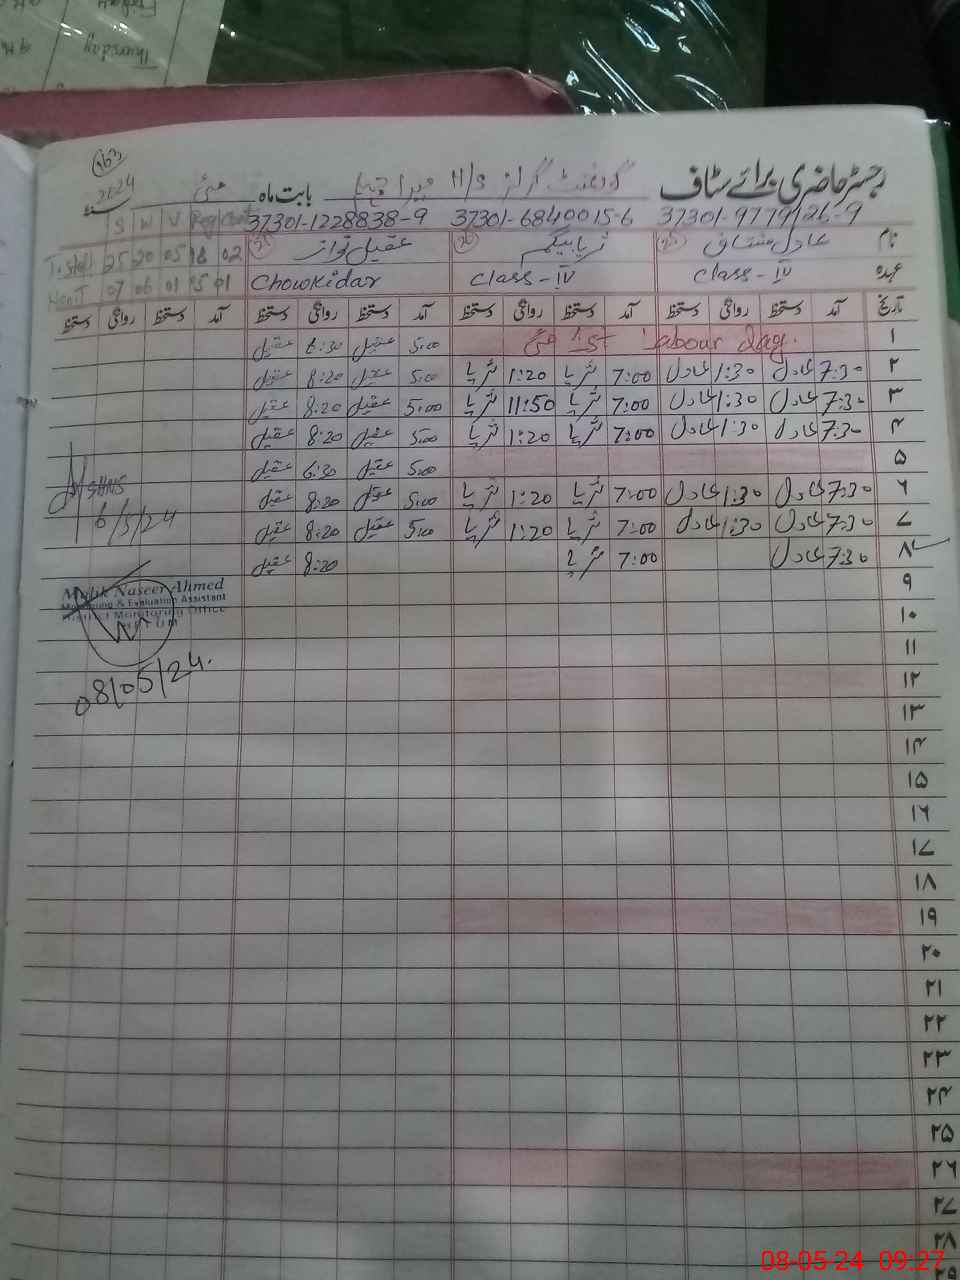 Thursday
163
رجسٹر حاضری برائے سٹاف گورنمنٹ گرلز H/S میرا بابت ماہ مئی 2024
37301-9779126-9 37301-6840015-6 37301-1228838-9 S W V Reg Cont
نام عادل مشتاق ثریا بیگم عقیل نواز T. Staff 25 20 05 18 02
عہدہ Class-IV Class-IV Chowkidar 07 06 01 01
تاریخ آمد دستخط روانگی دستخط آمد دستخط روانگی دستخط آمد دستخط روانگی دستخط آمد دستخط روانگی دستخط
۱ labour day. مئی 5:00 عقیل 6:30 عقیل
۲ 7:30 عادل 1:30 عادل 7:00 ثریا 1:20 ثریا 5:00 عقیل 8:20 عقیل
۳ 7:30 عادل 1:30 عادل 7:00 ثریا 11:50 ثریا 5:00 عقیل 8:20 عقیل
۴ 7:30 عادل 1:30 عادل 7:00 ثریا 1:20 ثریا 5:00 عقیل 8:20 عقیل
۵ 5:00 عقیل 6:30 عقیل
۶ 7:30 عادل 1:30 عادل 7:00 ثریا 1:20 ثریا 5:00 عقیل 8:20 عقیل
۷ 7:30 عادل 1:30 عادل 7:00 ثریا 1:20 ثریا 5:00 عقیل 8:20 عقیل
۸ 7:30 عادل 7:00 ثریا 8:20 عقیل
6/5/24
Malik Naseer Ahmed
Monitoring & Evaluation Assistant
District Monitoring Office
08/05/24.
۹
۱۰
۱۱
۱۲
۱۳
۱۴
۱۵
۱۶
۱۷
۱۸
۱۹
۲۰
۲۱
۲۲
۲۳
۲۴
۲۵
۲۶
۲۷
۲۸
08-05-24 09:27